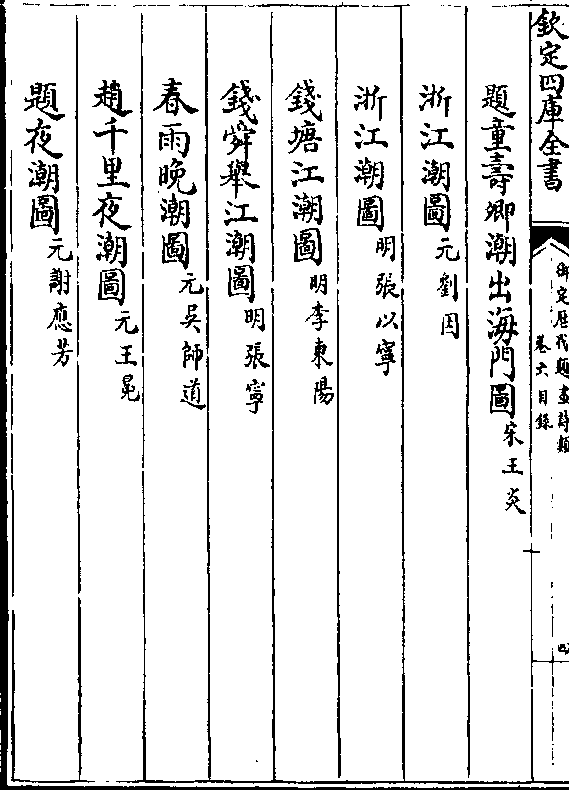 欽定四庫全書
御定歴代題畫詩類
卷六目錄
四
題童壽卿潮出海門圖宋王炎
浙江潮圖元劉因
浙江潮圖明張以寧
錢塘江潮圖明李東陽
錢舜舉江潮圖明張寧
春雨晚潮圖元吳師道
趙千里夜潮圖元王冕
題夜潮圖元謝應芳